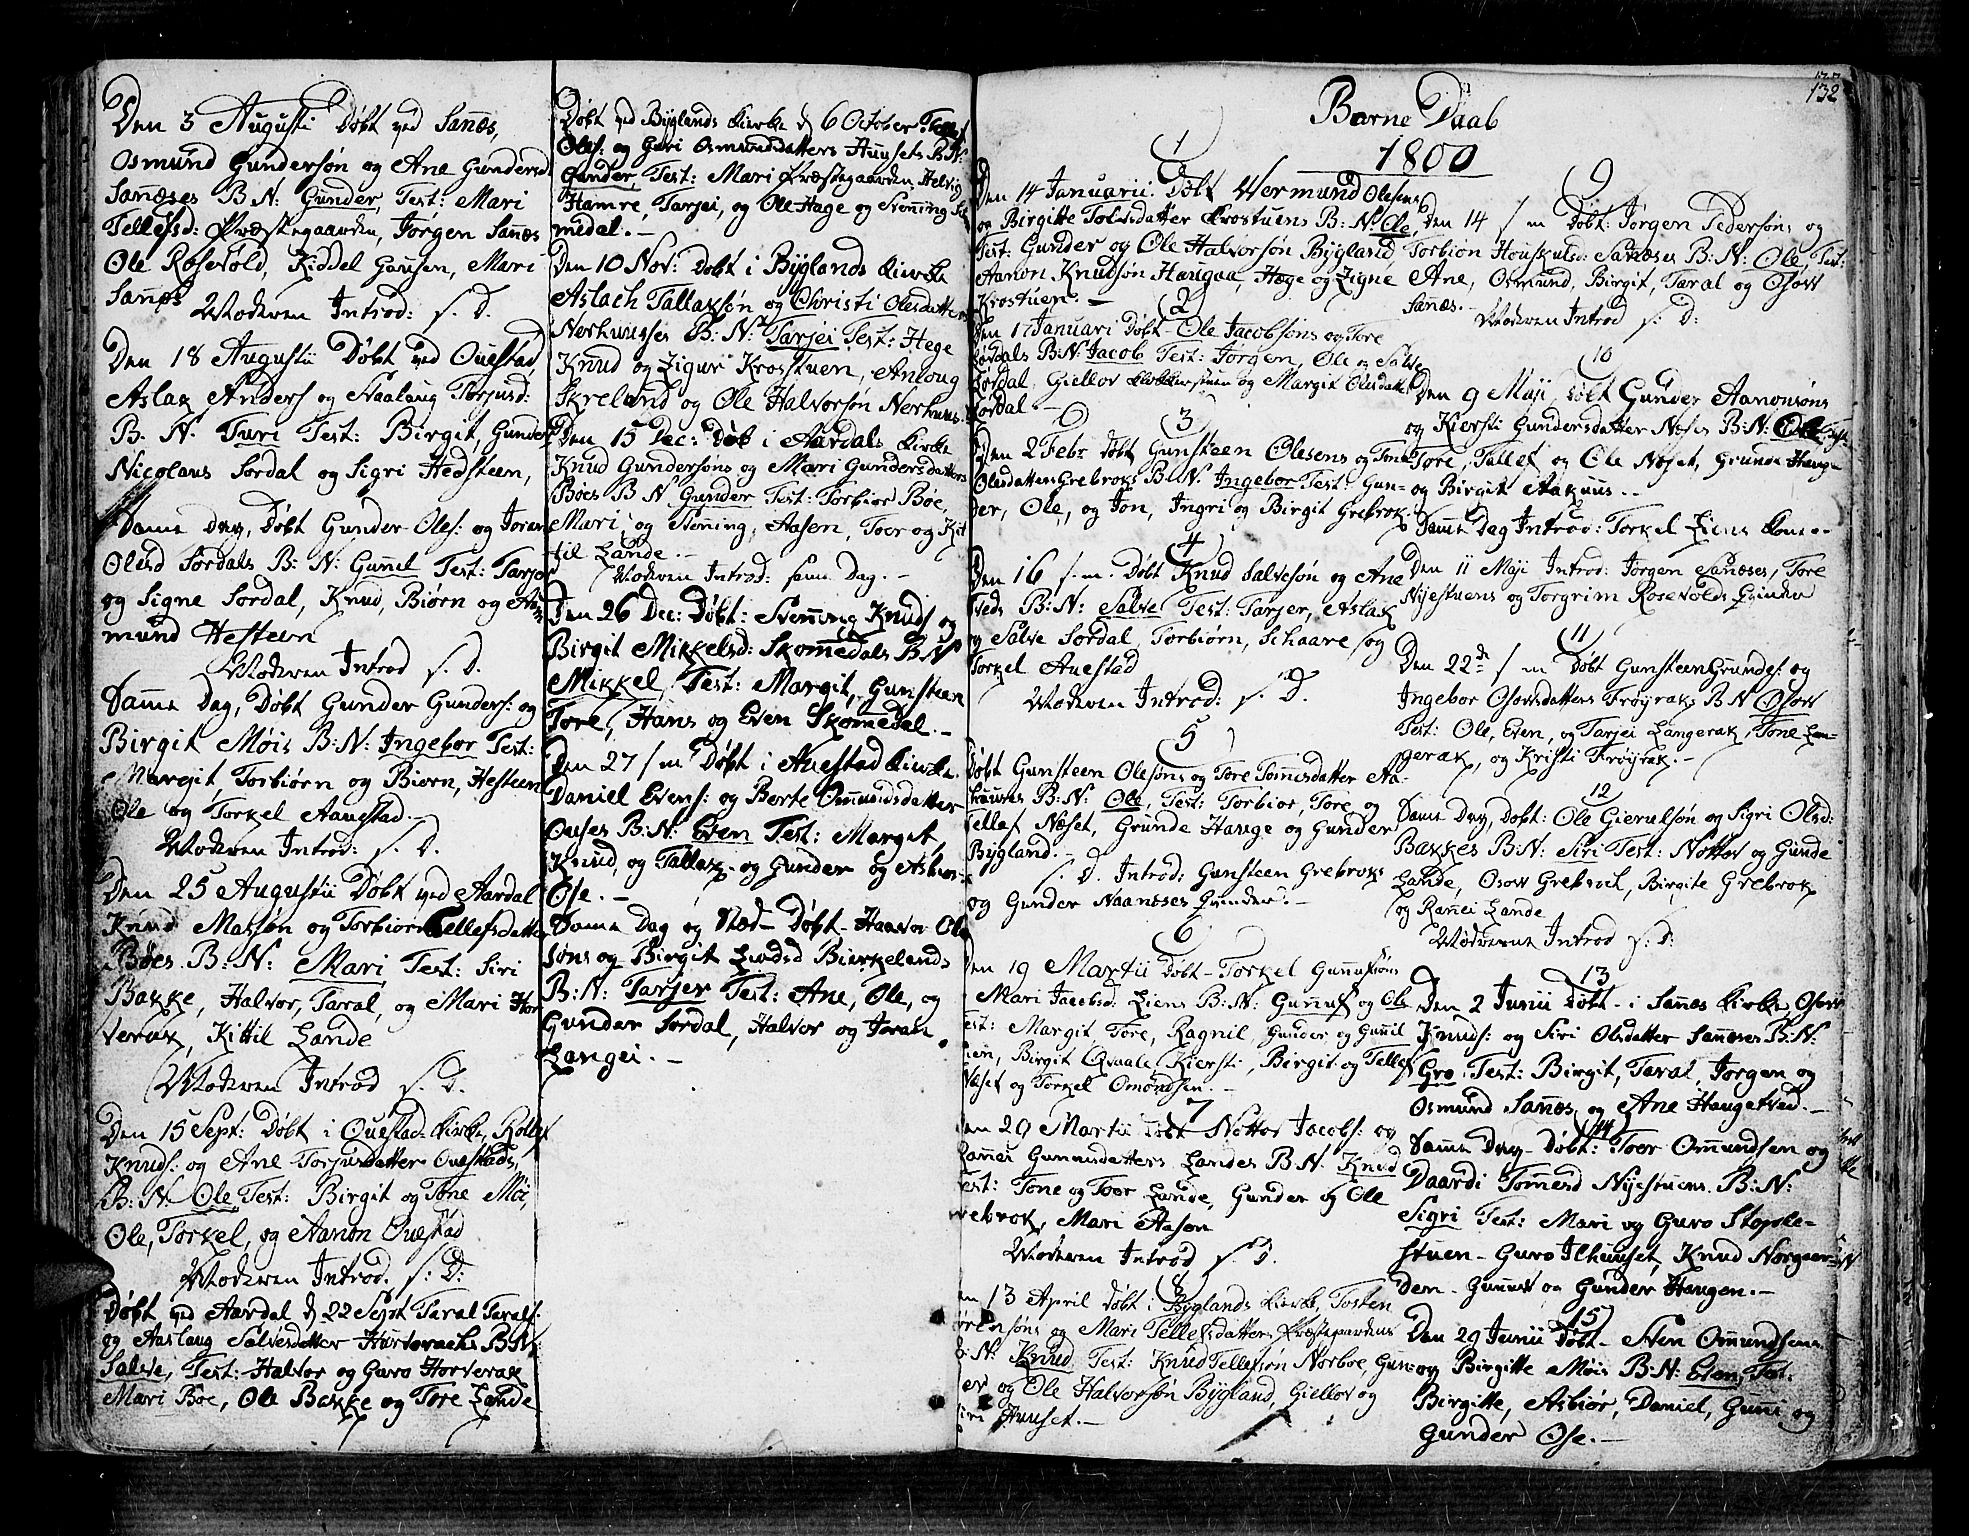 Den 3 Augusti Døbt ved Sanæs,
Osmund Gundersøn og Ane Gundersd
Sanæses B: N: Gunder, Test: Mari
Tellefsd: Præstegaarden, Jørgen Sanæs
Ole Rosevold, Kiddel Gausen, Mari
Sanæs
Moderen Introd: s. D.
Den 18 Augustii Døbt ved Ouestad,
Aslak Anders og Aaslaug Torjusd:
B. N. Turi Test: Birgit, Gunder
Nicolaus Sordal og Sigri Hedsteen,
Samme Dag, Døbt Gunder Oles: og Joran
Olesd Sordals B: N: Gunil Test: Tarjer
og Signe Sordal, Knud, Biørn og
mund Hesteen
Moderen Introd s. D.
Samme Dag, Døbt Gunder Gunders: og
Birgit Møis B: N: Ingebor Test:
Margit, Torbiørn og Biorn, Hesteen
Ole og Torkel Aauestad.
Moderen Introd: s. D.
Den 25 Augustii Døbt ved Aardal
Knud Massøn og Torbiør Tellefsdatter
Bøes B: N: Mari Test: Siri
Bakke, Halvor, Taral, og Mari Hor
verak, Kittil Lande
Moderen Introd s. D.
Den 15 Sept: Døbt i Ouestad Kirke, Rollef
Knuds: og Ane Torjusdatter Ouestads,
B: N: Ole Test: Birgit og Tone Møi,
Ole, Torkel, og Aanon Ouestad
Moderen Introd. s: D:
Døbt ved Aardal d 22 Sept Taral Taralf:
og Aaslaug Salvesdatter Hortveraks B: N:
Salve, Test: Halvor og Guro Horverak
Mari Boe, Ole Bakke og Tore Lande
Døbt ved Byglands Kirke d 6 October
Oles: og Guri Osmundsdatters Huusets B: N:
Gunder, Test: Mari Præstegaarden, Helvig
Hamre, Tarjei, og Ole Hage og Stenning
medal.
Den 10 Nov: Døbt i Byglands Kirke
Aslach Tallaksøn og Christi Olesdatters
Nerhuuses B: N: Tarjei Test: Hege
Knud og Sigur Krosstuen, Anloug
Skreland og Ole Halvorsøn Nerhuus.
Den 15 Dec: Døb i Aardals Kirke
Knud Gundersøns og Mari Gundersdatters
Bøes B N Gunder Test: Torbior Boe,
Mari, og Stenning, Aasen, Toer og Kit
til Lande.
Moderen Introd: sam Dag.
Den 26 Dec: Døbt: Svenning Knuds og
Birgit Mikkelsd: Skomedals B N
Mikkel, Test: Margit, Gunsteen
Tore, Hans og Even Skomedal.
Den 27 s: m Døbt i Auestad Kirke.
Daniel Evens: og Berte Omundsdatter
Ouses B: N: Even Test: Margit,
Knud, og Tallak og Gunder og Asbior
Ose.
Samme Dag og Sted Døbt Haavor Ole
søns og Birgit Bierkelands
B: N: Tarjer Test: Ane, Ole, og
Gunder Sordal, Halvor og Joran
Langei.
132
Børne Daab
1800
1
Den 14 Januarii Døbt Wermund Olesens
og Birgitte Tolvsdatter Krostuens B: N: Ole
Test: Gunder og Ole Halvorsøn Bygland
Aanon Knudsøn Haugaa, Hege og Signe
Krostuen.
2
Den 1 Januari Døbt Ole Jacobsøns og Tore
Sordals B: N: Jacob Test: Jørgen, Ole og Salve
Sordal, Giellov Klokkerstuen og Margit Olesdatter
Sordal.
3
Den 2 Febr: døbt Gunsteen Olesens og Tone
Olesdatters Grebroks B: N: Ingebor Test: Gun-
der, Ole, og Jon, Ingri og Birgit Grebrok.
4
Den 16 s. m. Døbt Knud Salvesøn og Ane
B: N: Salve Test: Tarjer, Aslak
og Salve Sordal, Torbiørn, Schaare, og
Torkel Auestad
Moderen Introd: s. D.
5
Døbt Gunsteen Olesøns og Tore Tomesdatter Aa-
kuures B: N: Ole, Test: Torbior, Tore, og
Tellef Næset, Grunde Hauge og Gunder
Bygland.
s. D. Introd: Gunsteen Grebroks
og Gunder Naanæses Qvinder.
6
Den 19 Martii Døbt Torkel Gunufsøns
Mari Jacobsd: Liens B: N: Gunuf og Ole
Test: Margit, Tore, Ragnil, Gunder og Gunil
Lien, Birgit Qvaale Kiersti, Birgit og Tellef
Næset og Torkel Omondsen.
7
Den 29 Martii døbt Nottov Jacobs: og
Ramei Gunnisdatters Landes B: N: Knud
Test: Tone og Toer Lande, Gunder og Ole
Grebrok, Mari Aasen
Moderen Introd s. D.
8
Den 13 April døbt i Byglands Kirke, Tosten
og Mari Tellefsdatters Præstegaardens
B: N: Knud, Test: Knud Tellefsøn Norboe, Gun-
der og Ole Halvorsøn Bygland, Giellov og
Siri Huuset.
9
Den 14 s m Døbt: Jørgen Pedersøns og
Torbiøn Houskulsd: Sanæses B: N: Ole Test:
Ane, Osmund, Birgit, Taral og Osov
Sanæs.
Moderen Introd s. D:
10
Den 9 Maji, døbt Gunder Aanonsøns
og Kiersti Gundersdatter Neses B: N:
Tore, Tellef og Ole Næset, Grunde Hauge
og Birgit Aakuus.
Samme Dag Introd: Torkel Liens Kone.
Den 11 Maji Introd: Jørgen Sanæses, Tore
Nyestuens og Torgrim Rosevolds Qvinder
11
Den 22de s m Døbt Gunsteen Grundes: og
Ingebor Osovsdatters Frøyraks B N Osov
Test: Ole, Even, og Tarjei Langerak, Tone Lan-
gerak, og Kristi Frøyrak.
12
Samme Dag, Dobt: Ole Gierulsøn og Sigri Olsd:
Bakkes B: N: Siri Test: Nottov og Gunde
Lande, Osov Grebrock, Birgite Grebrok
og Ramei Lande
Moderne Introd s. D:
13
Den 2 Junii Døbt i Sanæs Kirke Osov
Knuds: og Siri Olsdatter Sanæses B: N:
Gro Test: Birgit, Taral, Jorgen og
Osmund Sanæs, og Ane Haugetved.
14
Samme Dag Døbt: Toer Omundsen og
Daardi Tomesd Nyestuens B: N:
Sigri Test: Mari og Guro Stopele-
stuen Guro Jlhuuset, Knud Norgaar-
den Gunuf og Gunder Haugen.
15
Den 29 Junii Døbt Sven Omundsens
og Birgitte Møis B: N: Elen, Test:
Birgitte, Asbiør, Daniel, Guni og
Gunder Ose.